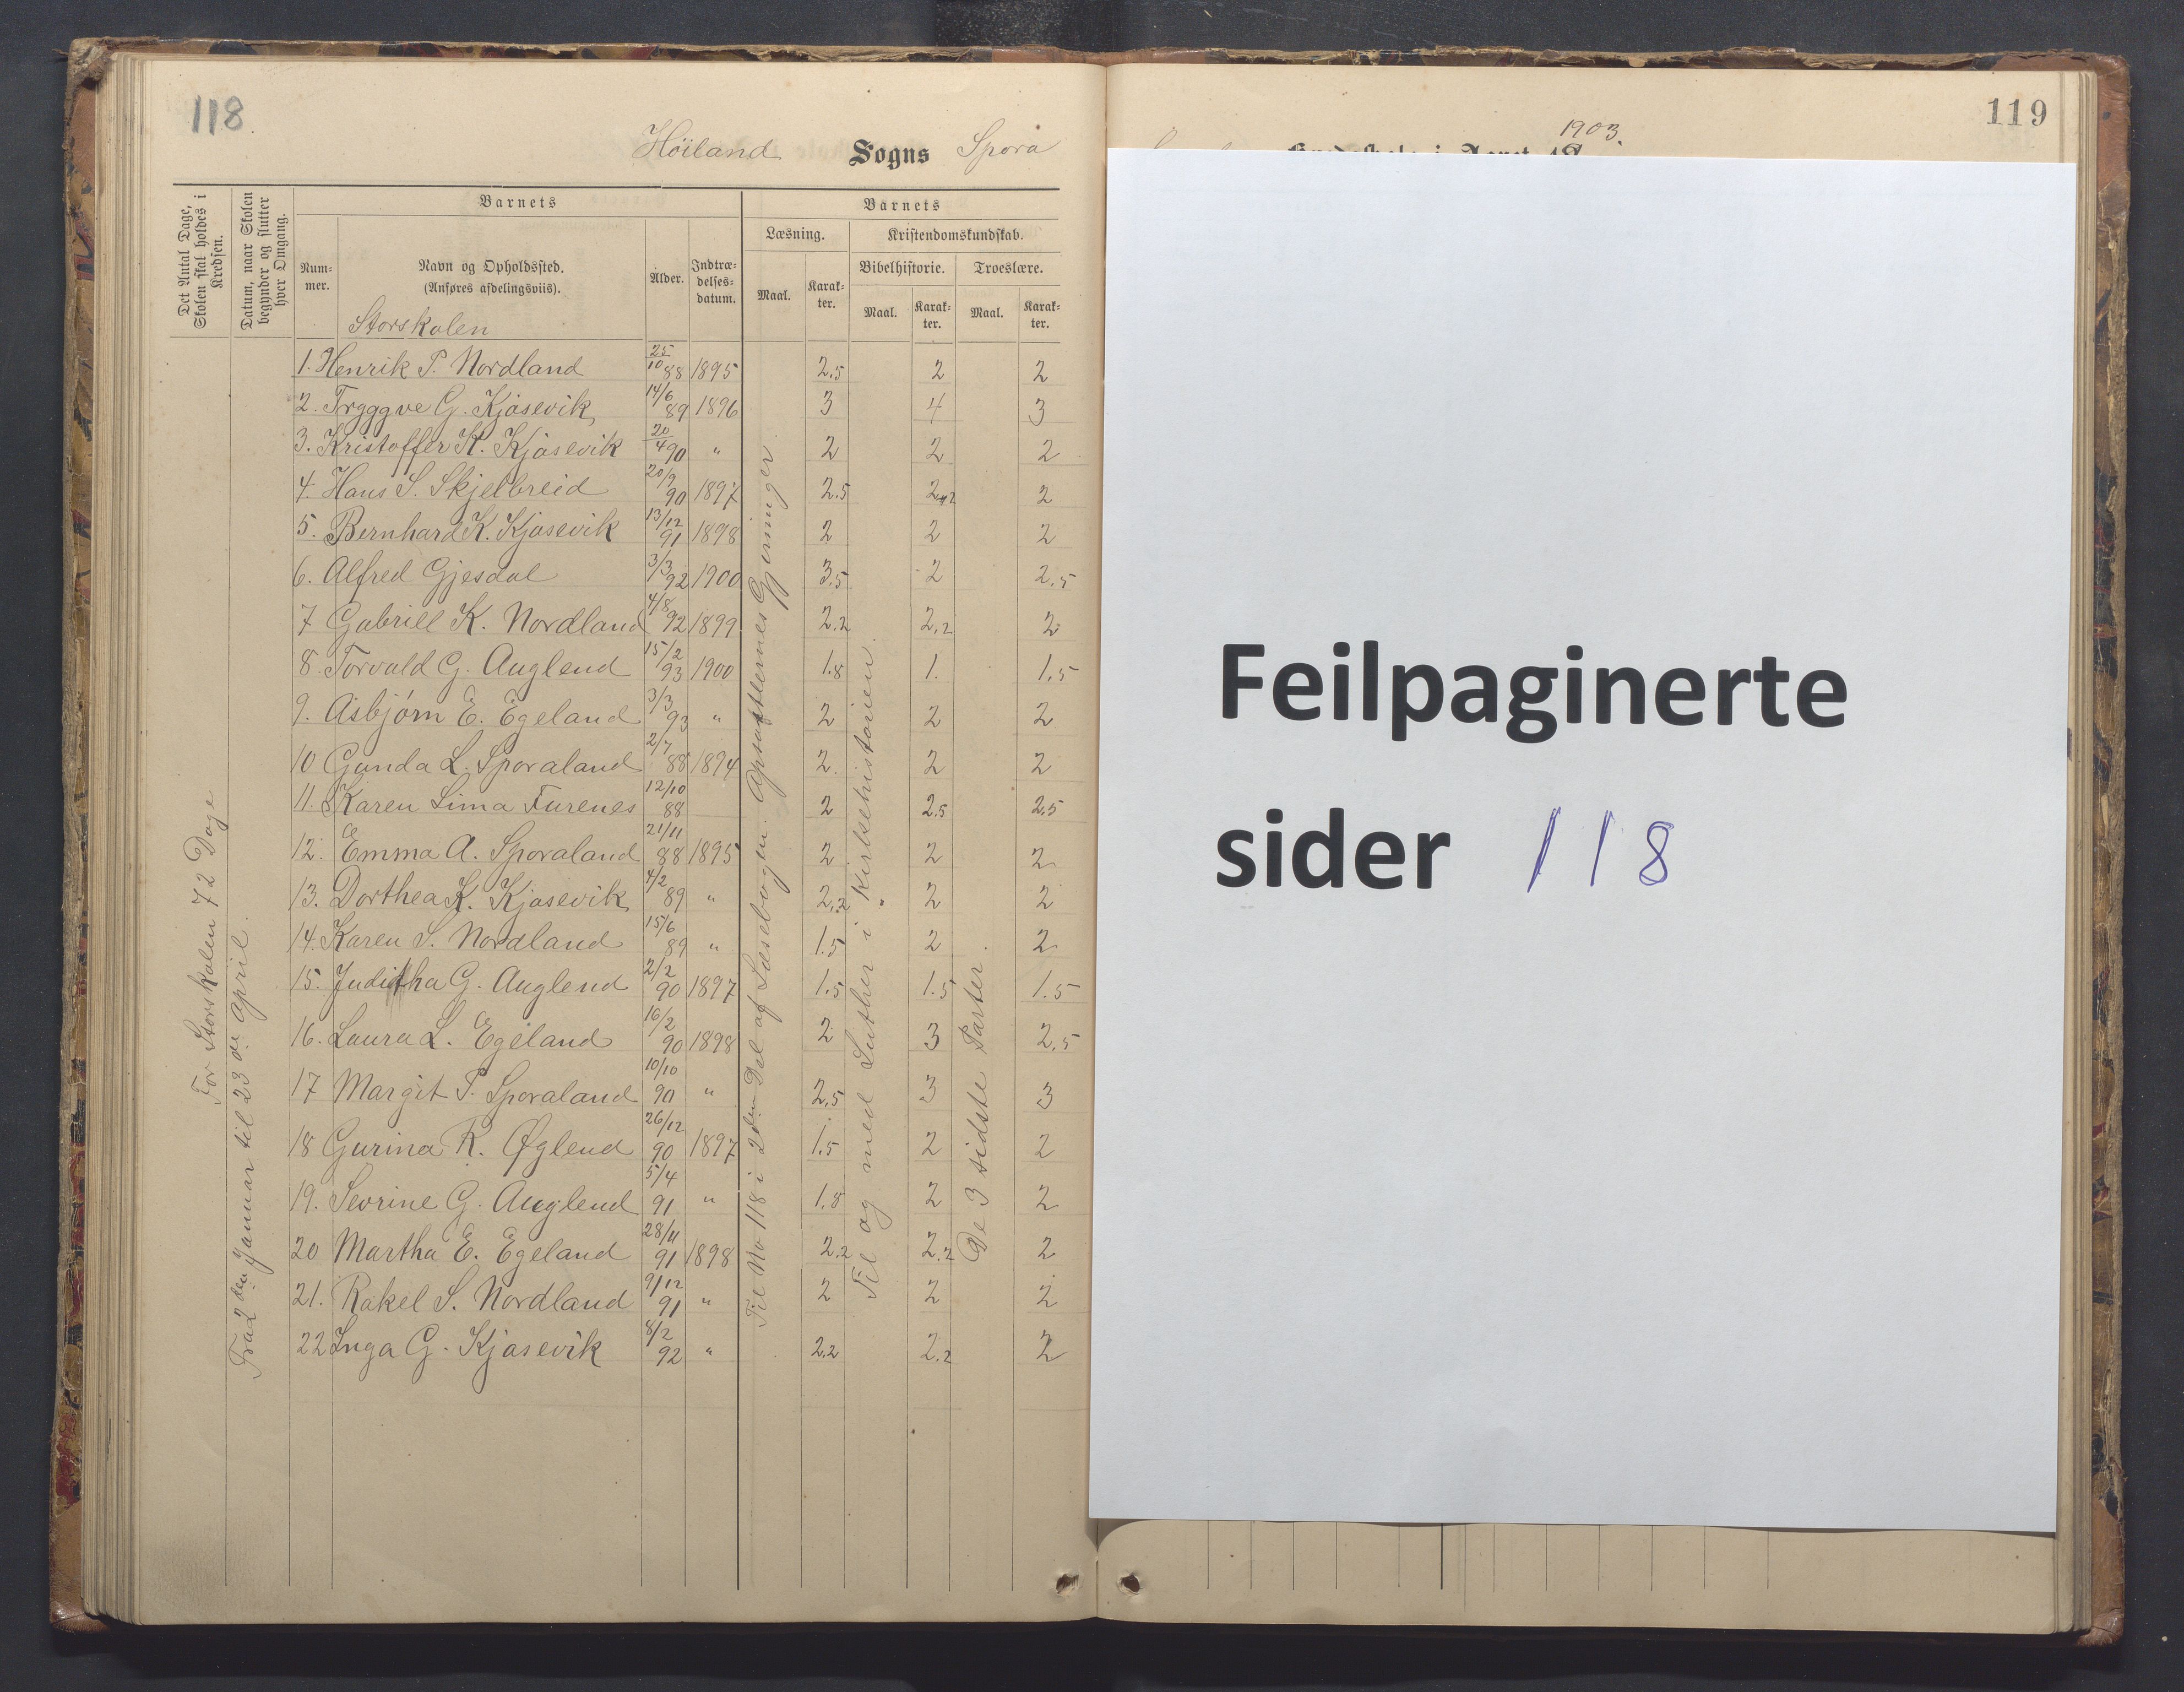 118
Höiland Sogns Spora
Det Antal Dage, Skolen skal holdes i Kredsen.
Datum, naar Skolen begynder og slutter hver Omgang.
Barnets
Barnets
Læsning.
Kristendomskundskab.
Num-
mer.
Navn og Opholdssted.
(Anføres afdelingsviis).
Alder.
Indtræ-
delses-
datum.
Maal.
Karak-
ter.
Bibelhistorie.
Troeslære.
Maal.
Karak-
ter.
Maal.
Karak-
ter.
Storskolen
1. Henrik P. Nordland 25/10 88 1895 2.5 2 2
2. Trygggve G. Kjosevik 14/6 89 1896 3 4 3
3. Kristoffer K. Kjosevik 20/4 90 " 2 2 2
4. Hans S. Skjelbreid 20/9 90 1897 2.5 2 2
5. Bernhard K. Kjosevik 13/12 91 1898 2 2 2
6. Alfred Gjesdal 3/3 92 1900 3.5 2 2.5
7 Gabriell K. Nordland 4/8 92 1899 2.2 2.2 2
8. Torvald G. Auglend 15/2 93 1900 1.8 1. 1.5
9. Asbjørn E. Egeland 3/3 93 " 2 2 2
10 Gunda L. Sporaland 2/7 88 1894 2. 2 2
11. Karen Lima Furenes 12/10 88 2 2.5 2.5
12. Emma A. Sporaland 21/11 88 1895 2 2 2
13. Dorthea K. Kjosevik 4/2 89 " 2.2 2 2
14. Karen S. Nordland 15/6 89 " 1.5 2 2
15. Juditha G. Auglend 2/2 90 1897 1.5 1.5 1.5
16. Laura L. Egeland 16/2 90 1898 2 3 2.5
17 Margit P. Sporaland 10/10 90 " 2.5 3 3
18 Gurina R. Øglend 26/12 90 1897 1.5 2 2
19. Sevrine G. Auglend 5/4 91 " 1.8 2 2
20 Martha E. Egeland 28/11 91 1898 2.2 2.2 2
21. Rakel S. Nordland 9/12 91 " 2 2 2
22 Inga G. Kjosevik 8/2 92 " 2.2 2.2 2
For Storskolen 72 Dage
Fra 2den Januar til 23de April.
Til No 118 i 2den Del af Læsebogen. Apostlernes Gjerninger
Til og med Luther i Kirkehistorien.
De 3 sidste Parter.
119
1903.
Feilpaginerte
sider 118